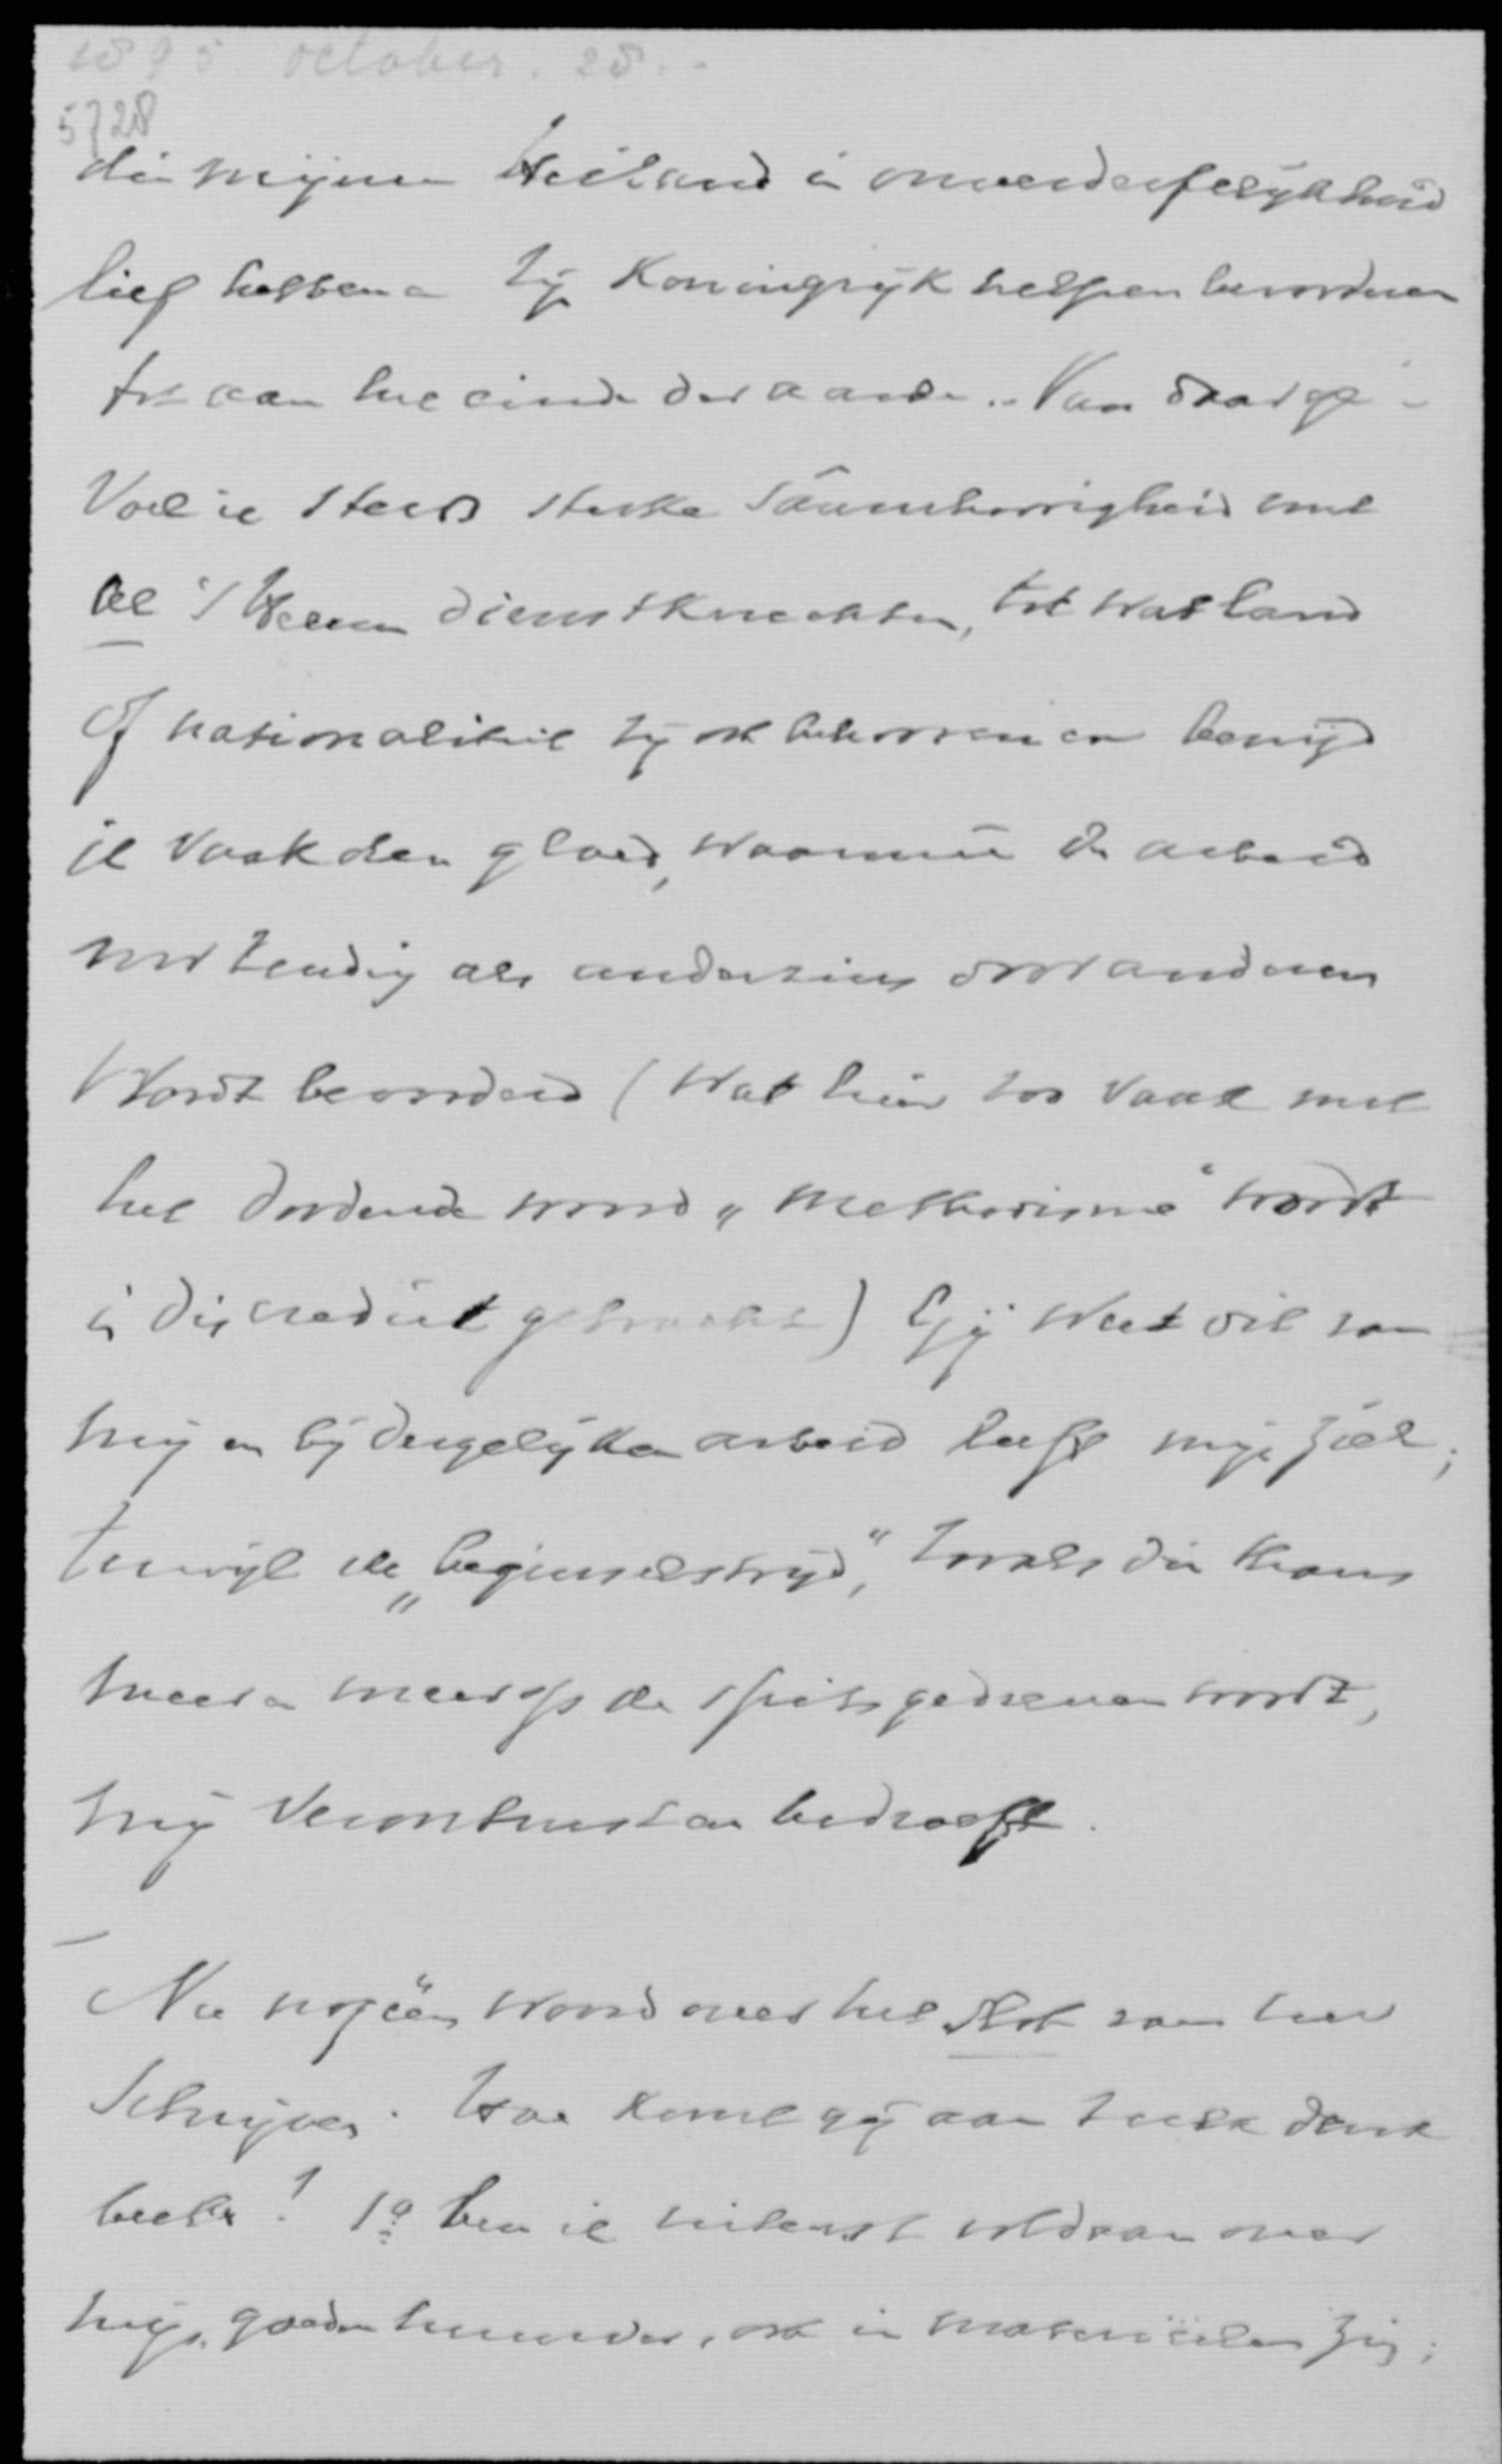 1895. october. 28.
5728
die mijnen Heiland in onverderfelijkheid
lief hebben en Zijn Koningrijk helpen bevorderen
tot aan het einde der aarde. Van daar ge-
voel ik steeds sterke saamhorigheid met
al 's Heeren dienstknechten, tot wat land
of nationaliteit zij ook behooren en benijd
ik vaak den gloed, waarmee de arbeid
uitwendig als anderzins door anderen
wordt bevorderd (wat hier zoo vaak met
het doodende woord „methodisme" wordt
in discrediet gebracht) Gij weet dit van
mij en bij dergelijken arbeid leeft mijn ziel;
terwijl de „beginselstrijd", zooals die thans
meer en meer op de spits gedreven wordt,
mij verontrust en bedroeft.
Nu nog één woord over het slot van uw
schrijven. Hoe komt gij aan zulke denk
beelden! 1o ben ik uiterst voldaan over
mijn goeden huurder, ook in materieelen zin;